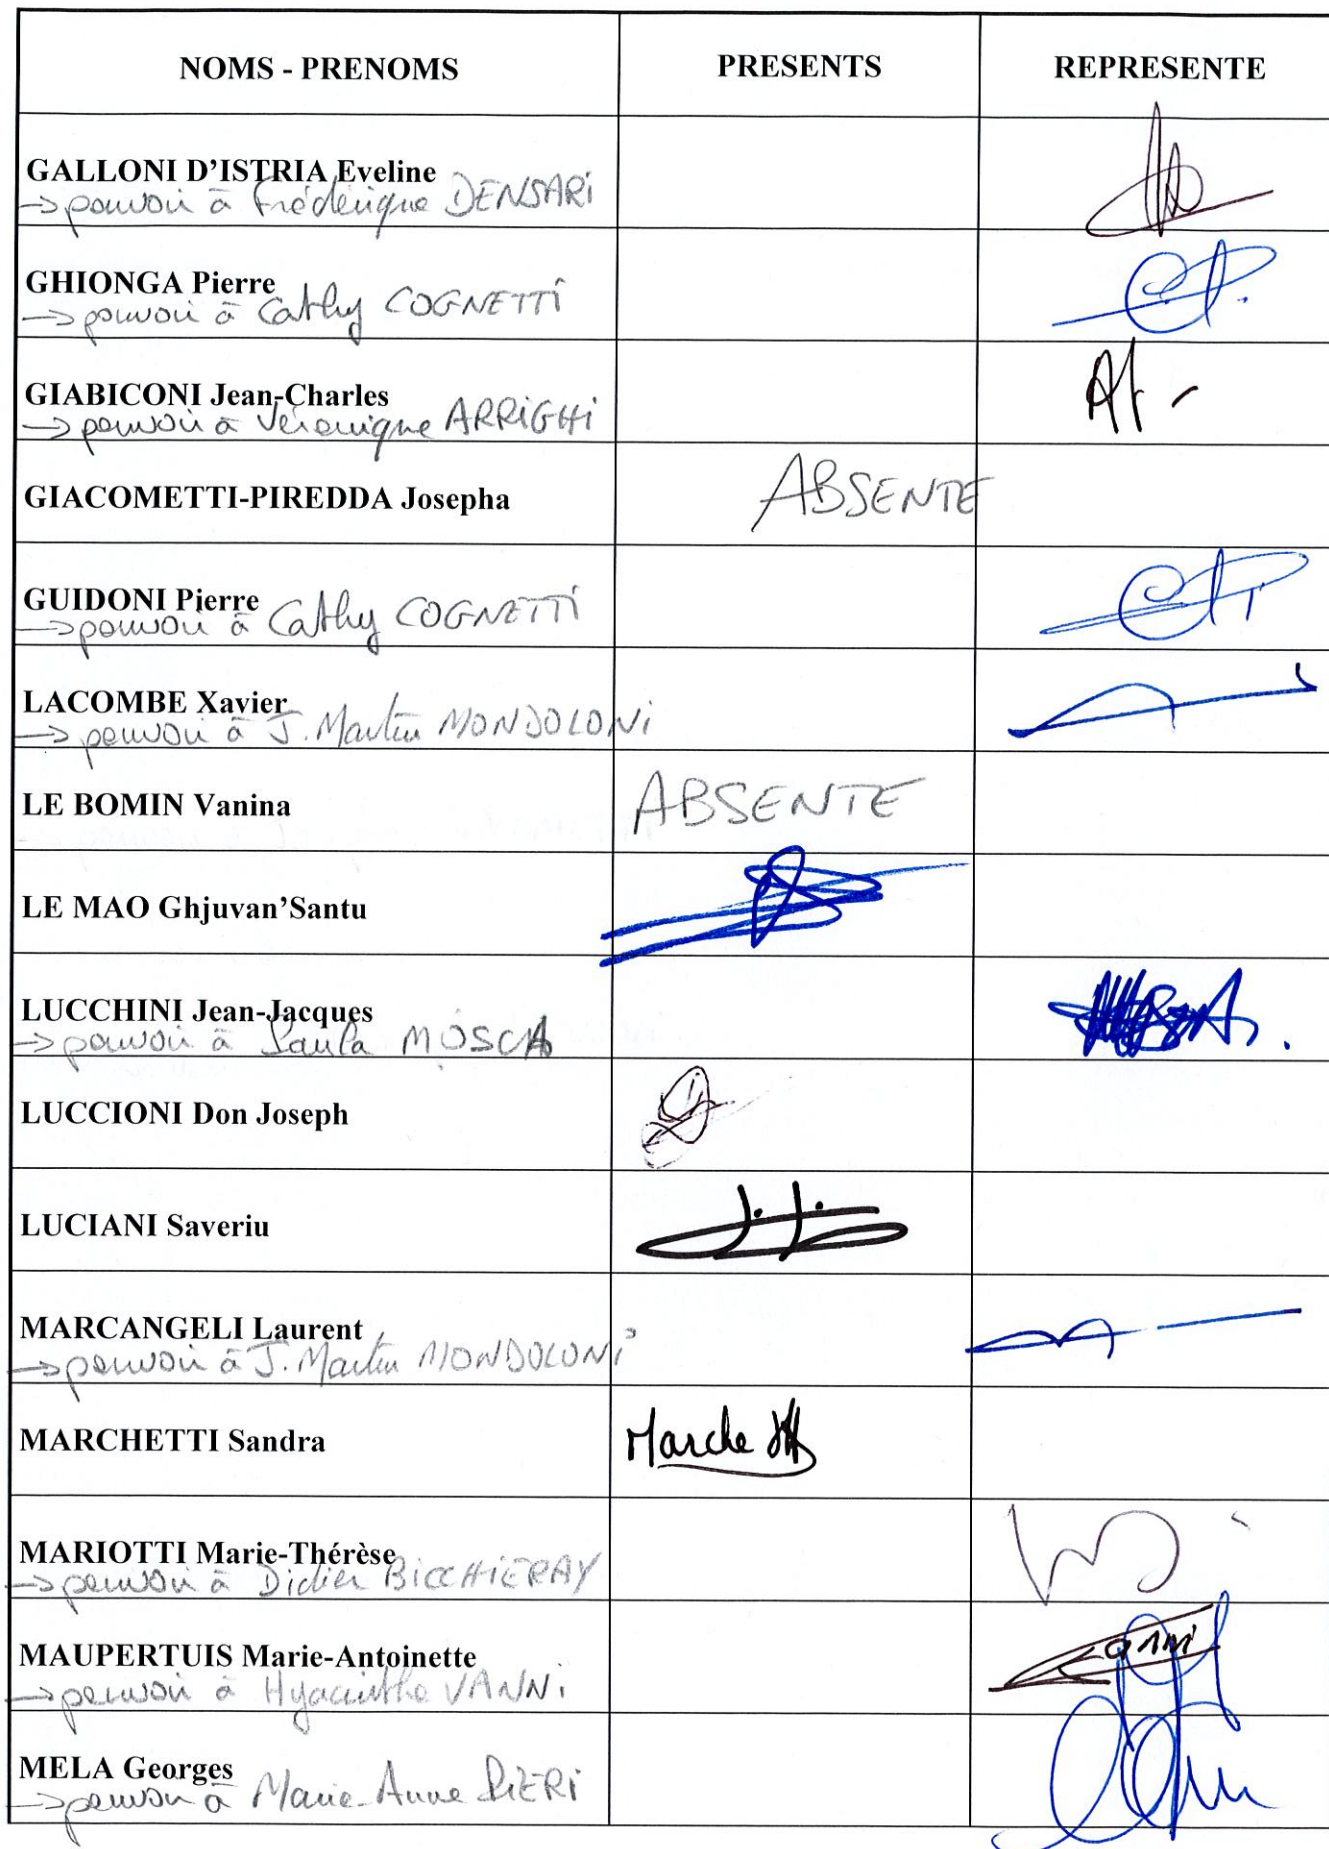 NOMS - PRENOMS PRESENTS REPRESENTE
GALLONI D'ISTRIA Eveline
→ pouvoir à Frédérique DENSARI
GHIONGA Pierre
→ pouvoir à Cathy COGNETTI
GIABICONI Jean-Charles
→ pouvoir à Véronique ARRIGHI
GIACOMETTI-PIREDDA Josepha ABSENTE
GUIDONI Pierre
→ pouvoir à Cathy COGNETTI
LACOMBE Xavier
→ pouvoir à J. Martin MONDOLONI
LE BOMIN Vanina ABSENTE
LE MAO Ghjuvan'Santu
LUCCHINI Jean-Jacques
→ pouvoir à Paula MOSCA
LUCCIONI Don Joseph
LUCIANI Saveriu
MARCANGELI Laurent
→ pouvoir à J. Martin MONDOLONI
MARCHETTI Sandra
MARIOTTI Marie-Thérèse
→ pouvoir à Didier BICCHIERAY
MAUPERTUIS Marie-Antoinette
→ pouvoir à Hyacinthe VANNI
MELA Georges
→ pouvoir à Marie-Anne PIERI